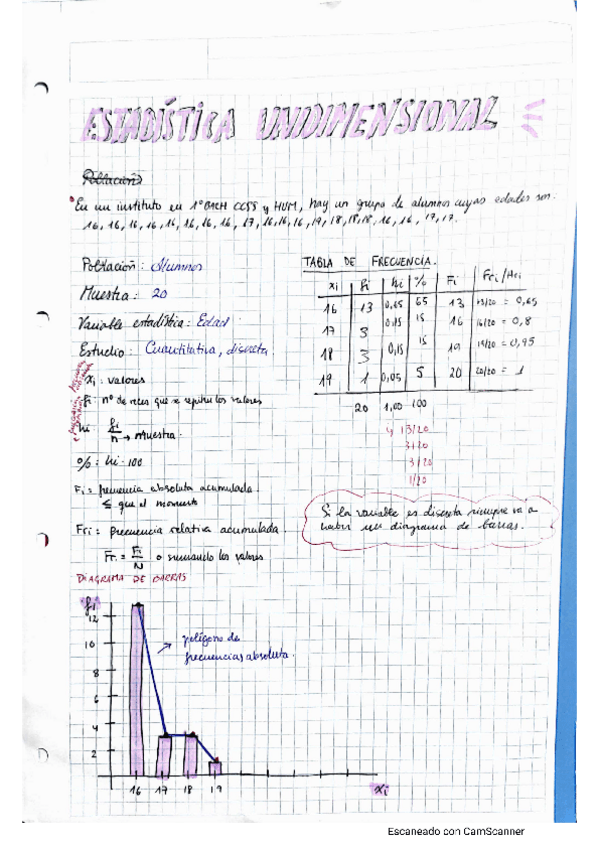 ESTADÍSTICA UNIDIMENSIONAL
Población
En un instituto en 1º BACH CCSS y HUM, hay un grupo de alumnos cuyas edades son:
16, 16, 16, 16, 16, 16, 16, 16, 17, 16, 16, 16, 19, 18, 18, 18, 16, 16, 17, 17.
Población: Alumnos
Muestra: 20
Variable estadística: Edad
Estudio: Cuantitativa, discreta
xi: valores
fi: nº de veces que se repiten los valores
hi: fi/n → muestra.
%: hi · 100
Fi = frecuencia absoluta acumulada.
≤ que el momento
Fri = frecuencia relativa acumulada.
Fr. = Fi/N o sumando los valores
TABLA DE FRECUENCIA.
xi fi hi % Fi Fri/Hi
16 13 0,65 65 13 13/20 = 0,65
17 3 0,15 15 16 16/20 = 0,8
18 3 0,15 15 19 19/20 = 0,95
19 1 0,05 5 20 20/20 = 1
20 1,00 100
13/20
3/20
3/20
1/20
Si la variable es discreta siempre va a
haber un diagrama de barras.
DIAGRAMA DE BARRAS
fi
12
10
8
6
4
2
polígono de
frecuencias absoluta.
16 17 18 19 xi
Escaneado con CamScanner